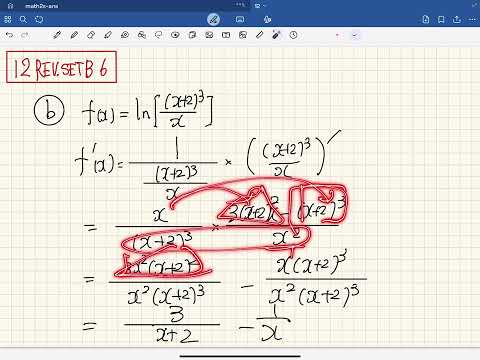 math2x-ans
12 REV.SET B 6
ⓑ f(x) = ln[(x+2)³/x]
f'(x) = 1/((x+2)³/x) × ((x+2)³/x)′
= x/(x+2)³ × (3(x+2)²x - (x+2)³)/x²
= 3x²(x+2)²/(x²(x+2)³) - x(x+2)³/(x²(x+2)³)
= 3/(x+2) - 1/x